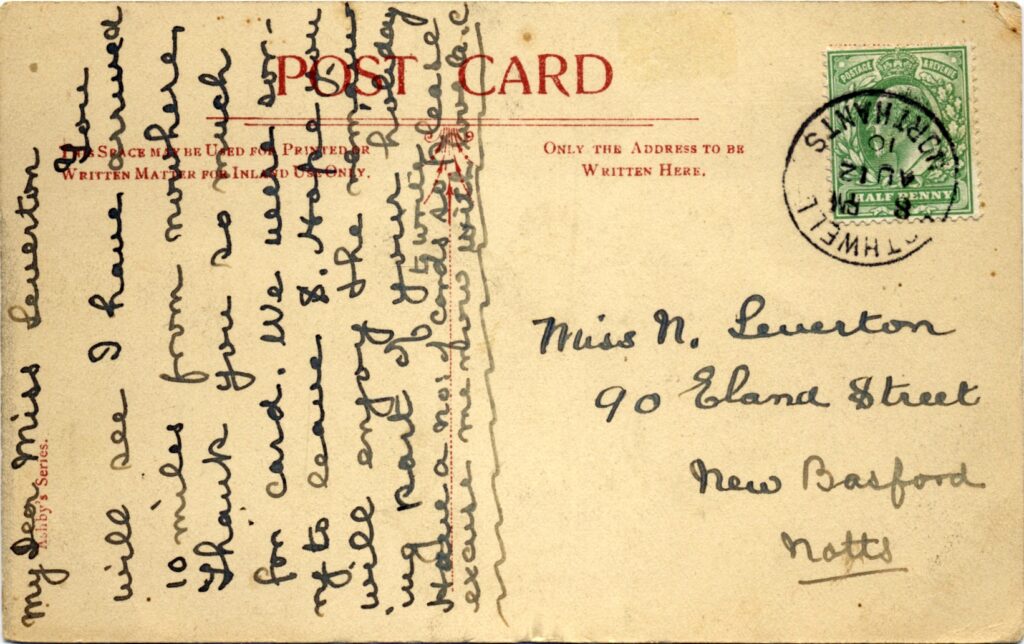 POST CARD
THIS SPACE MAY BE USED FOR PRINTED OR
WRITTEN MATTER FOR INLAND USE ONLY.
ONLY THE ADDRESS TO BE
WRITTEN HERE.
POSTAGE & REVENUE
HALF PENNY
ROTHWELL NORTHANTS
8 PM
AU 12
10
My Dear Miss Leverton
You
will see I have arrived
10 miles from nowhere,
Thank you so much
for card. We were sor-
ry to leave S. Hope you
will enjoy the remain-
ing part of your holiday
to write
Have a no. of cards so please
excuse me now with love
Miss N. Leverton
90 Eland Street
New Basford
Notts
Ashby's Series.